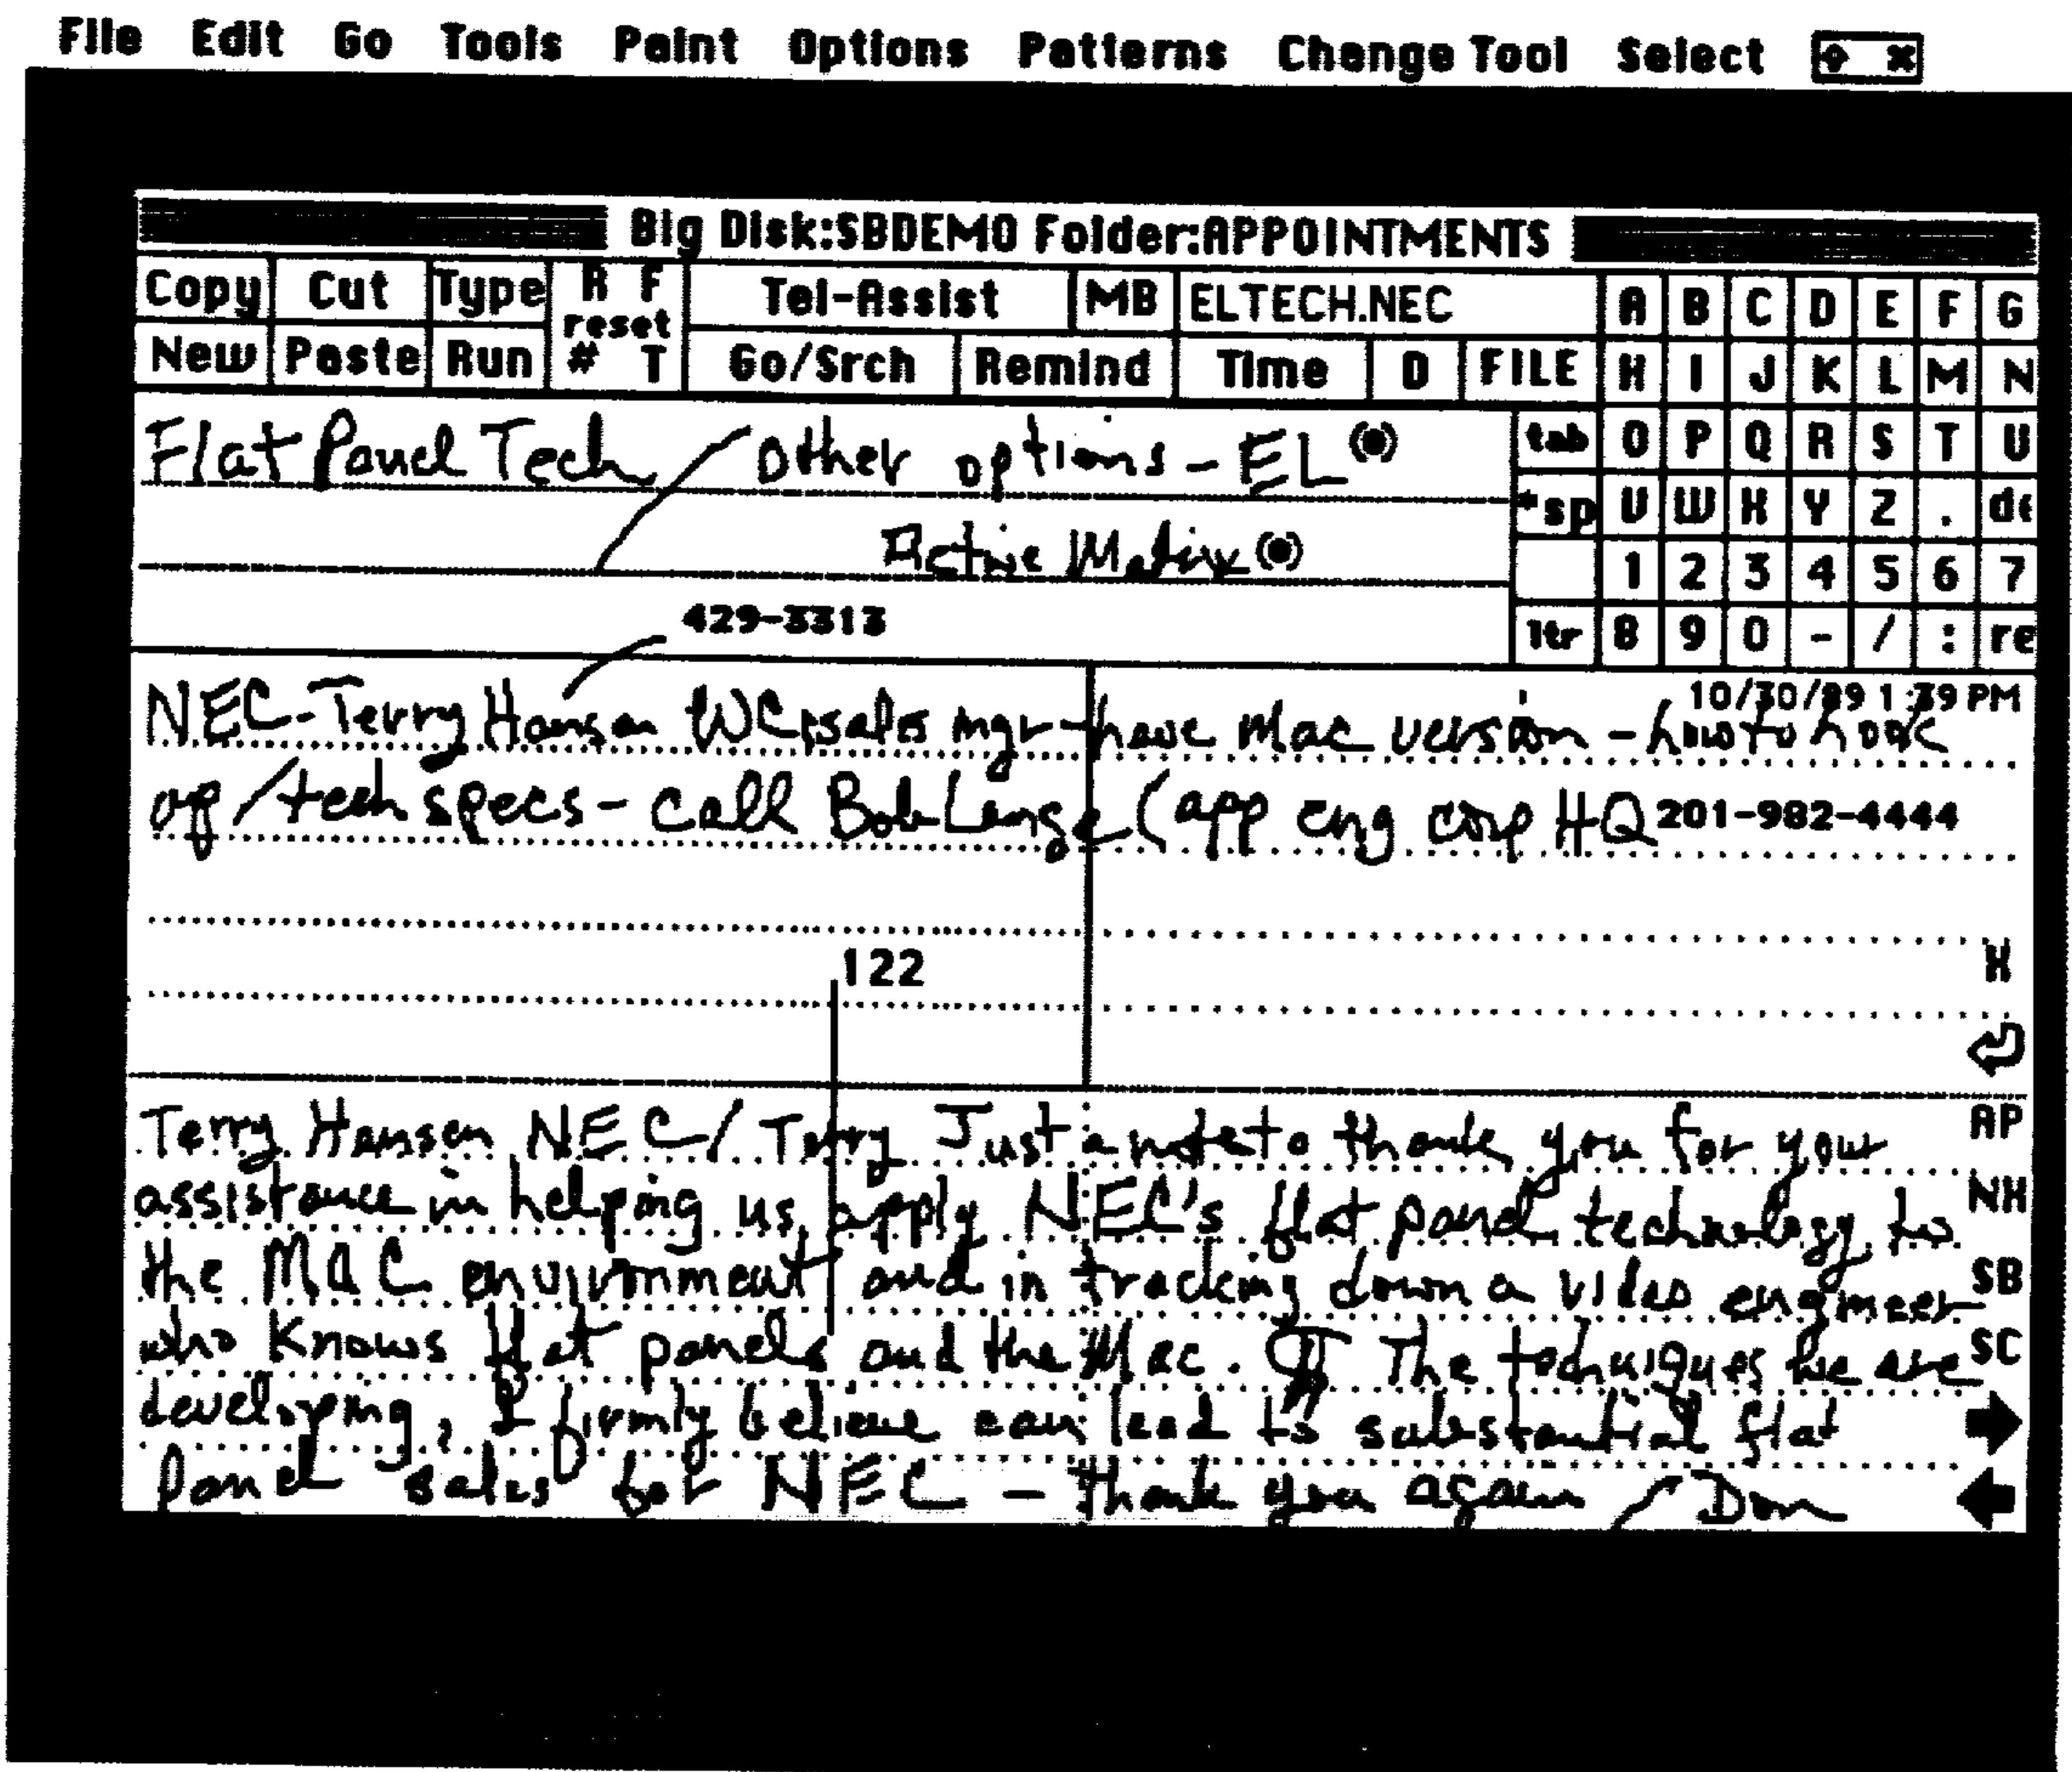 File Edit Go Tools Paint Options Patterns Change Tool Select
Big Disk:SBDEMO Folder:APPOINTMENTS
Copy Cut Type R F Tel-Assist MB ELTECH.NEC A B C D E F G
reset
New Paste Run # T Go/Srch Remind Time D FILE H I J K L M N
Flat Panel Tech / Other options - EL tab O P Q R S T U
sp V W X Y Z .
Active Matrix 1 2 3 4 5 6 7
429-3313 ltr 8 9 0 - / : re
10/30/89 1:39 PM
NEC-Terry Hansen WC sales mgr - have Mac version - how to hook
up / tech specs - call Bob Lange (app eng corp HQ 201-982-4444
122 X
Terry Hansen NEC / Terry Just a note to thank you for your AP
assistance in helping us apply NEC's flat panel technology to NX
the MAC environment and in tracking down a video engineer SB
who knows flat panels and the Mac. ¶ The techniques we are SC
developing, I firmly believe can lead to substantial flat
panel sales for NEC - thank you again / Don